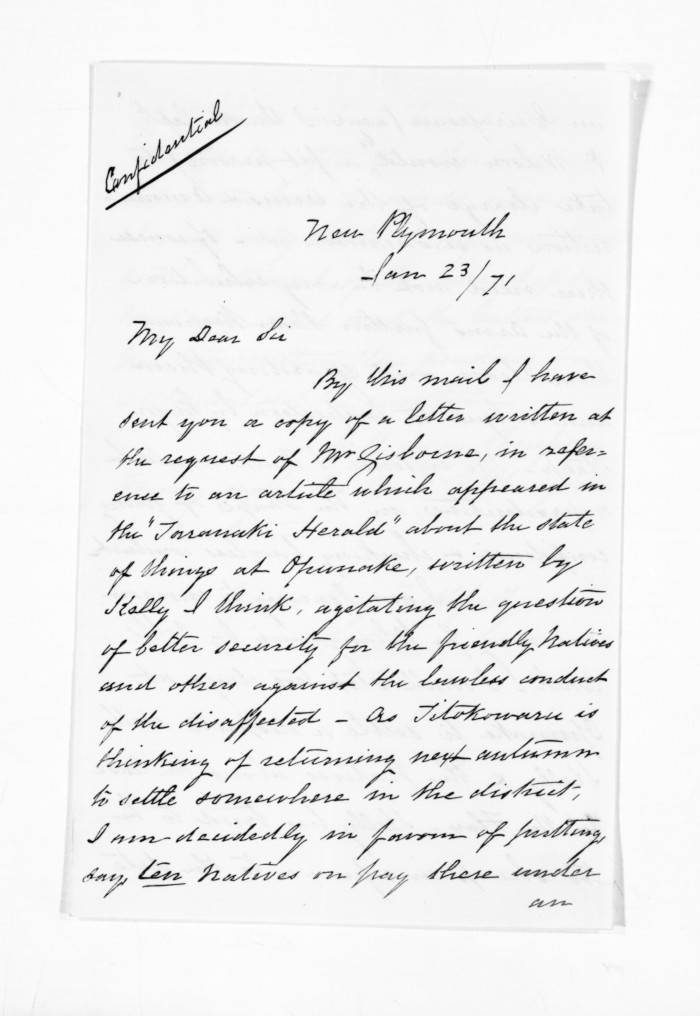 Confidential
New Plymouth
Jan 23/71
My Dear Sir
By this mail I have
sent you a copy of a letter written at
the request of Mr Gisborne, in refer-
ence to an article which appeared in
the "Taranaki Herald" about the state
of things at Opunake, written by
Kelly I think, agitating the question
of better security for the friendly Natives
and others against the lawless conduct
of the disaffected - As Titokowaru is
thinking of returning next autumn
to settle somewhere in the district,
I am decidedly in favour of putting,
say, ten Natives on pay there under
an